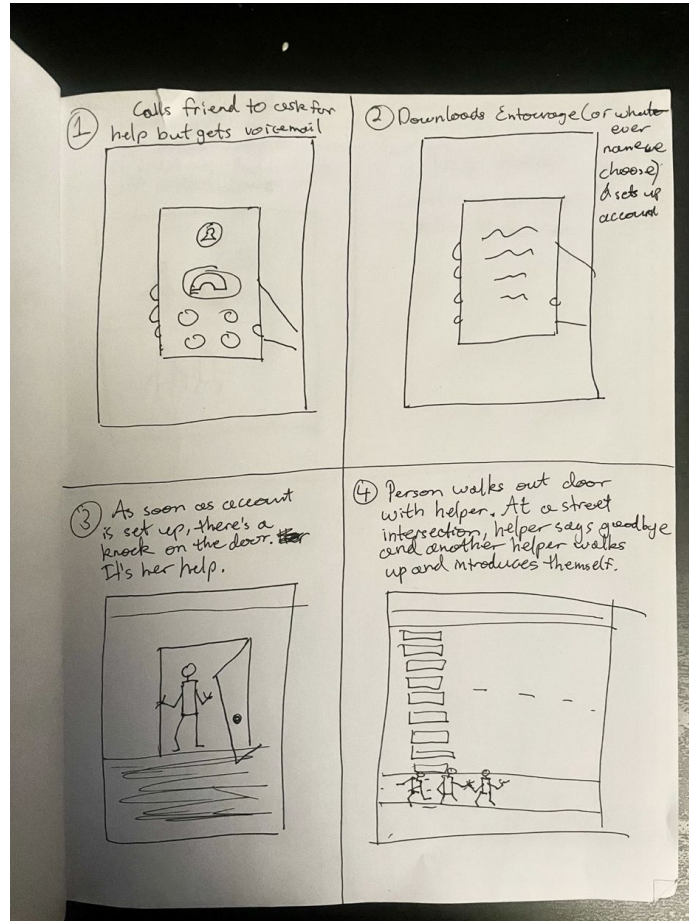 1
Calls friend to ask for
help but gets voicemail
2
Downloads Entourage (or whatever
name we
choose)
& sets up
account
3
As soon as account
is set up, there's a
knock on the door.
It's her help.
4
Person walks out door
with helper. At a street
intersection, helper says goodbye
and another helper walks
up and introduces themself.